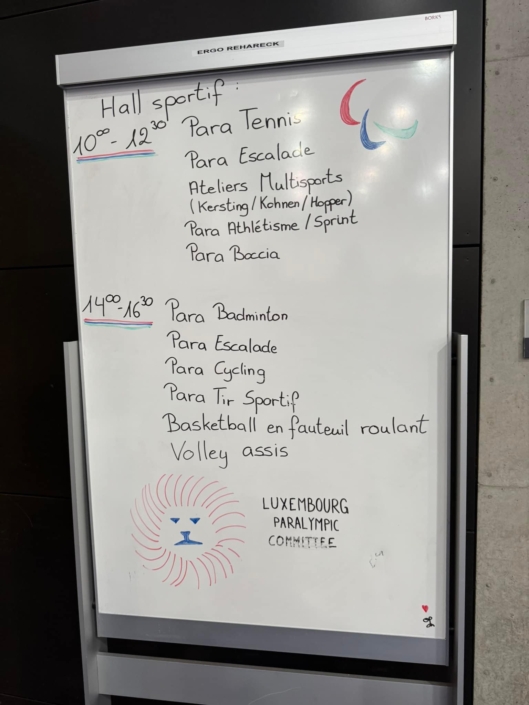 ERGO REHARECK
Hall sportif :
10⁰⁰ - 12³⁰ Para Tennis
Para Escalade
Ateliers Multisports
(Kersting/Kohnen/Hopper)
Para Athlétisme/Sprint
Para Boccia
14⁰⁰-16³⁰ Para Badminton
Para Escalade
Para Cycling
Para Tir Sportif
Basketball en fauteuil roulant
Volley assis
LUXEMBOURG
PARALYMPIC
COMMITTEE